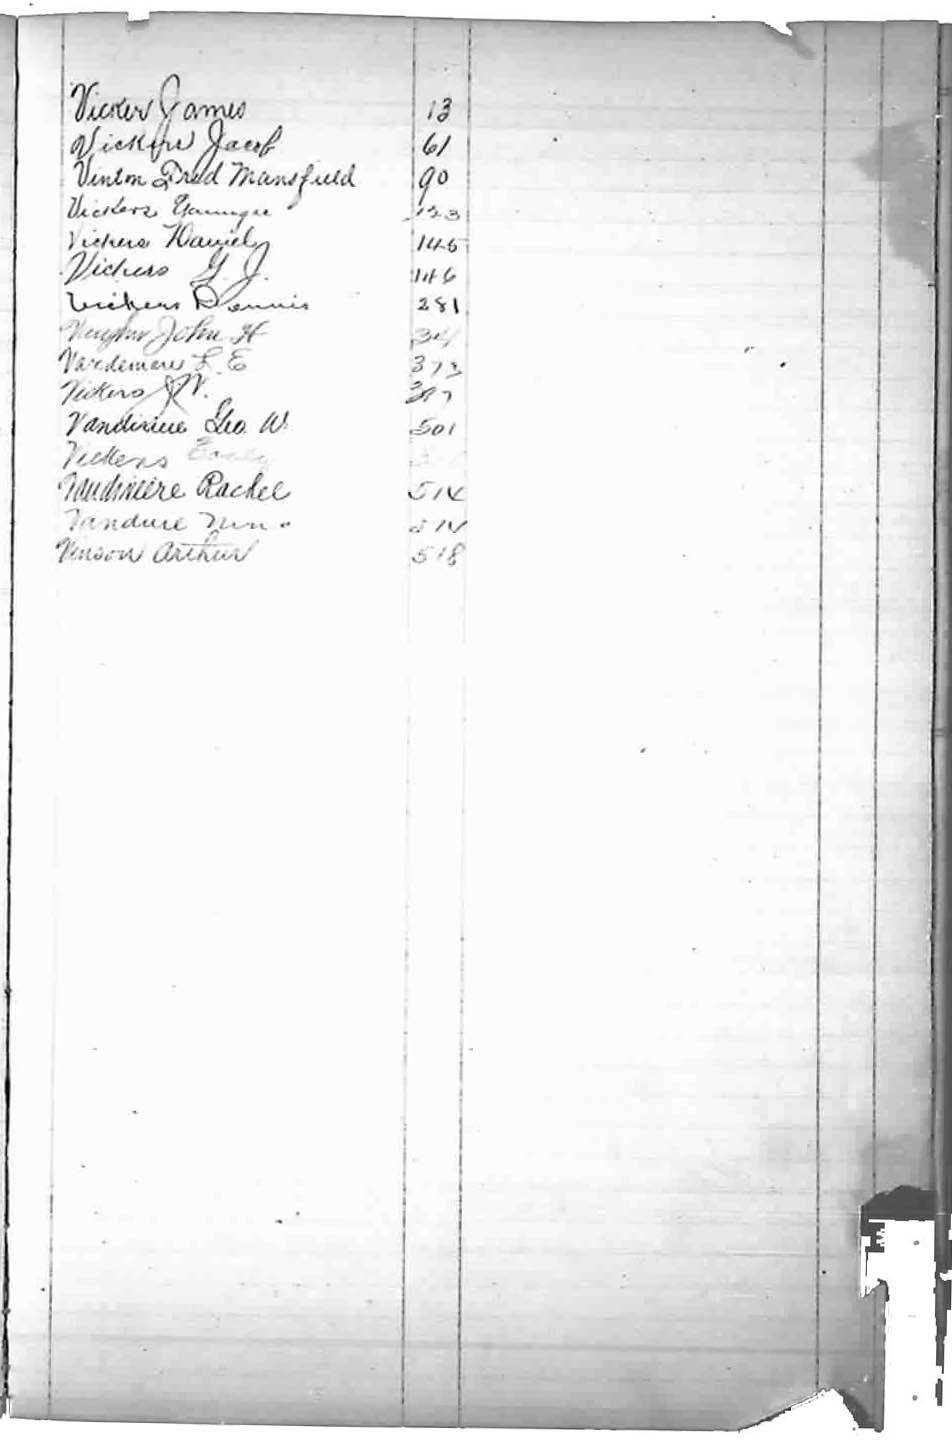 Vicker James 13
Vickers Jacob 61
Vinton Fred Mansfield 90
Vickers 123
Vickers Daniel 145
Vickers G. J. 146
Vickers Dennis 281
Vaughn John H 34
Vardeman L. E 373
Vickers J W. 397
Vandiviere Geo. W. 501
Vickens
Vandiviere Rachel 514
514
Vinson Arthur 518